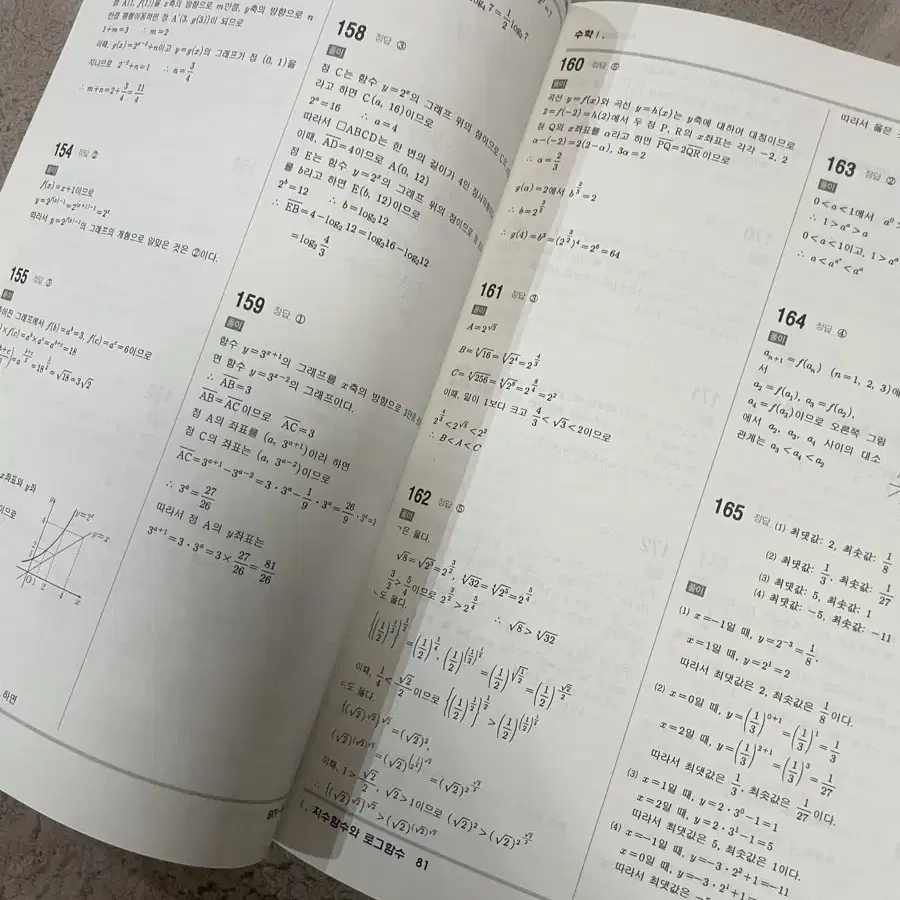 점 A(1, f(1))을 x축의 방향으로 m만큼, y축의 방향으로 n
만큼 평행이동하면 점 A'(3, g(3))이 되므로
1+m=3 ∴ m=2
이때, g(x)=2^{x-2}+n이고 y=g(x)의 그래프가 점 (0, 1)을
지나므로 2^{-2}+n=1 ∴ n=3/4
∴ m+n=2+3/4=11/4
154 정답 ②
풀이
f(x)=x+1이므로
따라서 y=2^{f(x)-1}의 그래프의 개형으로 알맞은 것은 ②이다.
155 정답 ③
풀이
어진 그래프에서 f(b)=a^b=3, f(c)=a^c=6이므로
)×f(c)=a^b×a^c=a^{b+c}=18
=18^{1/2}=√18=3√2
x좌표와 y좌
이므로
y=2^x
y=x
하면
158 정답 ③
풀이
점 C는 함수 y=2^x의 그래프 위의 점이므로
라고 하면 C(a, 16)이므로
2^a=16 ∴ a=4
따라서 □ABCD는 한 변의 길이가 4인
이때, AD=4이므로 A(0, 12)
점 E는 함수 y=2^x의 그래프 위의 점이므로
를 b라고 하면 E(b, 12)이므로
2^b=12 ∴ b=log₂12
∴ EB=4-log₂12=log₂16-log₂12
=log₂4/3
159 정답 ①
풀이
함수 y=3^{x+1}의 그래프를 x축의 방향으로 3만큼
면 함수 y=3^{x-2}의 그래프이다.
∴ AB=3
AB=AC이므로 AC=3
점 A의 좌표를 (a, 3^{a+1})이라 하면
점 C의 좌표는 (a, 3^{a-2})이므로
AC=3^{a+1}-3^{a-2}=3·3^a-1/9·3^a=26/9·3^a=3
∴ 3^a=27/26
따라서 점 A의 y좌표는
3^{a+1}=3·3^a=3×27/26=81/26
수학 I
160 정답 ⑤
풀이
곡선 y=f(x)와 곡선 y=h(x)는 y축에 대하여 대칭이므로
2=f(-2)=h(2)에서 두 점 P, R의 x좌표는 각각 -2, 2
점 Q의 x좌표를 α라고 하면 PQ=2QR이므로
α-(-2)=2(2-α), 3α=2
∴ α=2/3
g(α)=2에서 b^{2/3}=2
∴ b=2^{3/2}
∴ g(4)=b⁴=(2^{3/2})⁴=2⁶=64
161 정답 ③
풀이
A=2^{√3}
이때, 밑이 1보다 크고 4/3<√3<2이므로
2^{4/3}<2^{√3}<2²
∴ B<A<C
162 정답 ⑤
풀이
ㄱ은 옳다.
√8=√2³=2^{3/2}, ∜32=∜2⁵=2^{5/4}
3/2>5/4이므로 2^{3/2}>2^{5/4}
∴ √8>∜32
도 옳다.
이때, 1/4<√2/2이므로
도 옳다.
이때, 1>√2/2, √2>1이므로 (√2)²>(√2)^{√2/2}
I. 지수함수와 로그함수 81
따라서 옳은
163 정답 ②
풀이
0<a<1에서
∴ 1>a^a>a
0<a<1이고, 1>a^a
∴ a<a^{a^a}<a^a
164 정답 ④
풀이
a_{n+1}=f(a_n) (n=1, 2, 3)에
서
a₂=f(a₁), a₃=f(a₂),
a₄=f(a₃)이므로 오른쪽 그림
에서 a₂, a₃, a₄ 사이의 대소
관계는 a₃<a₄<a₂
165 정답 (1) 최댓값: 2, 최솟값: 1/8
(2) 최댓값: 1/3, 최솟값: 1/27
(3) 최댓값: 5, 최솟값: 1
(4) 최댓값: -5, 최솟값: -11
풀이
(1) x=-1일 때, y=2^{-3}=1/8,
x=1일 때, y=2¹=2
따라서 최댓값은 2, 최솟값은 1/8이다.
(2) x=0일 때, y=(1/3)^{0+1}=(1/3)¹=1/3
x=2일 때, y=(1/3)^{2+1}=(1/3)³=1/27
따라서 최댓값은 1/3, 최솟값은 1/27이다.
(3) x=1일 때, y=2·3⁰-1=1
x=2일 때, y=2·3¹-1=5
따라서 최댓값은 5, 최솟값은 1이다.
(4) x=-1일 때, y=-3·2²+1=-11
x=0일 때, y=-3·2¹+1=
따라서 최댓값은